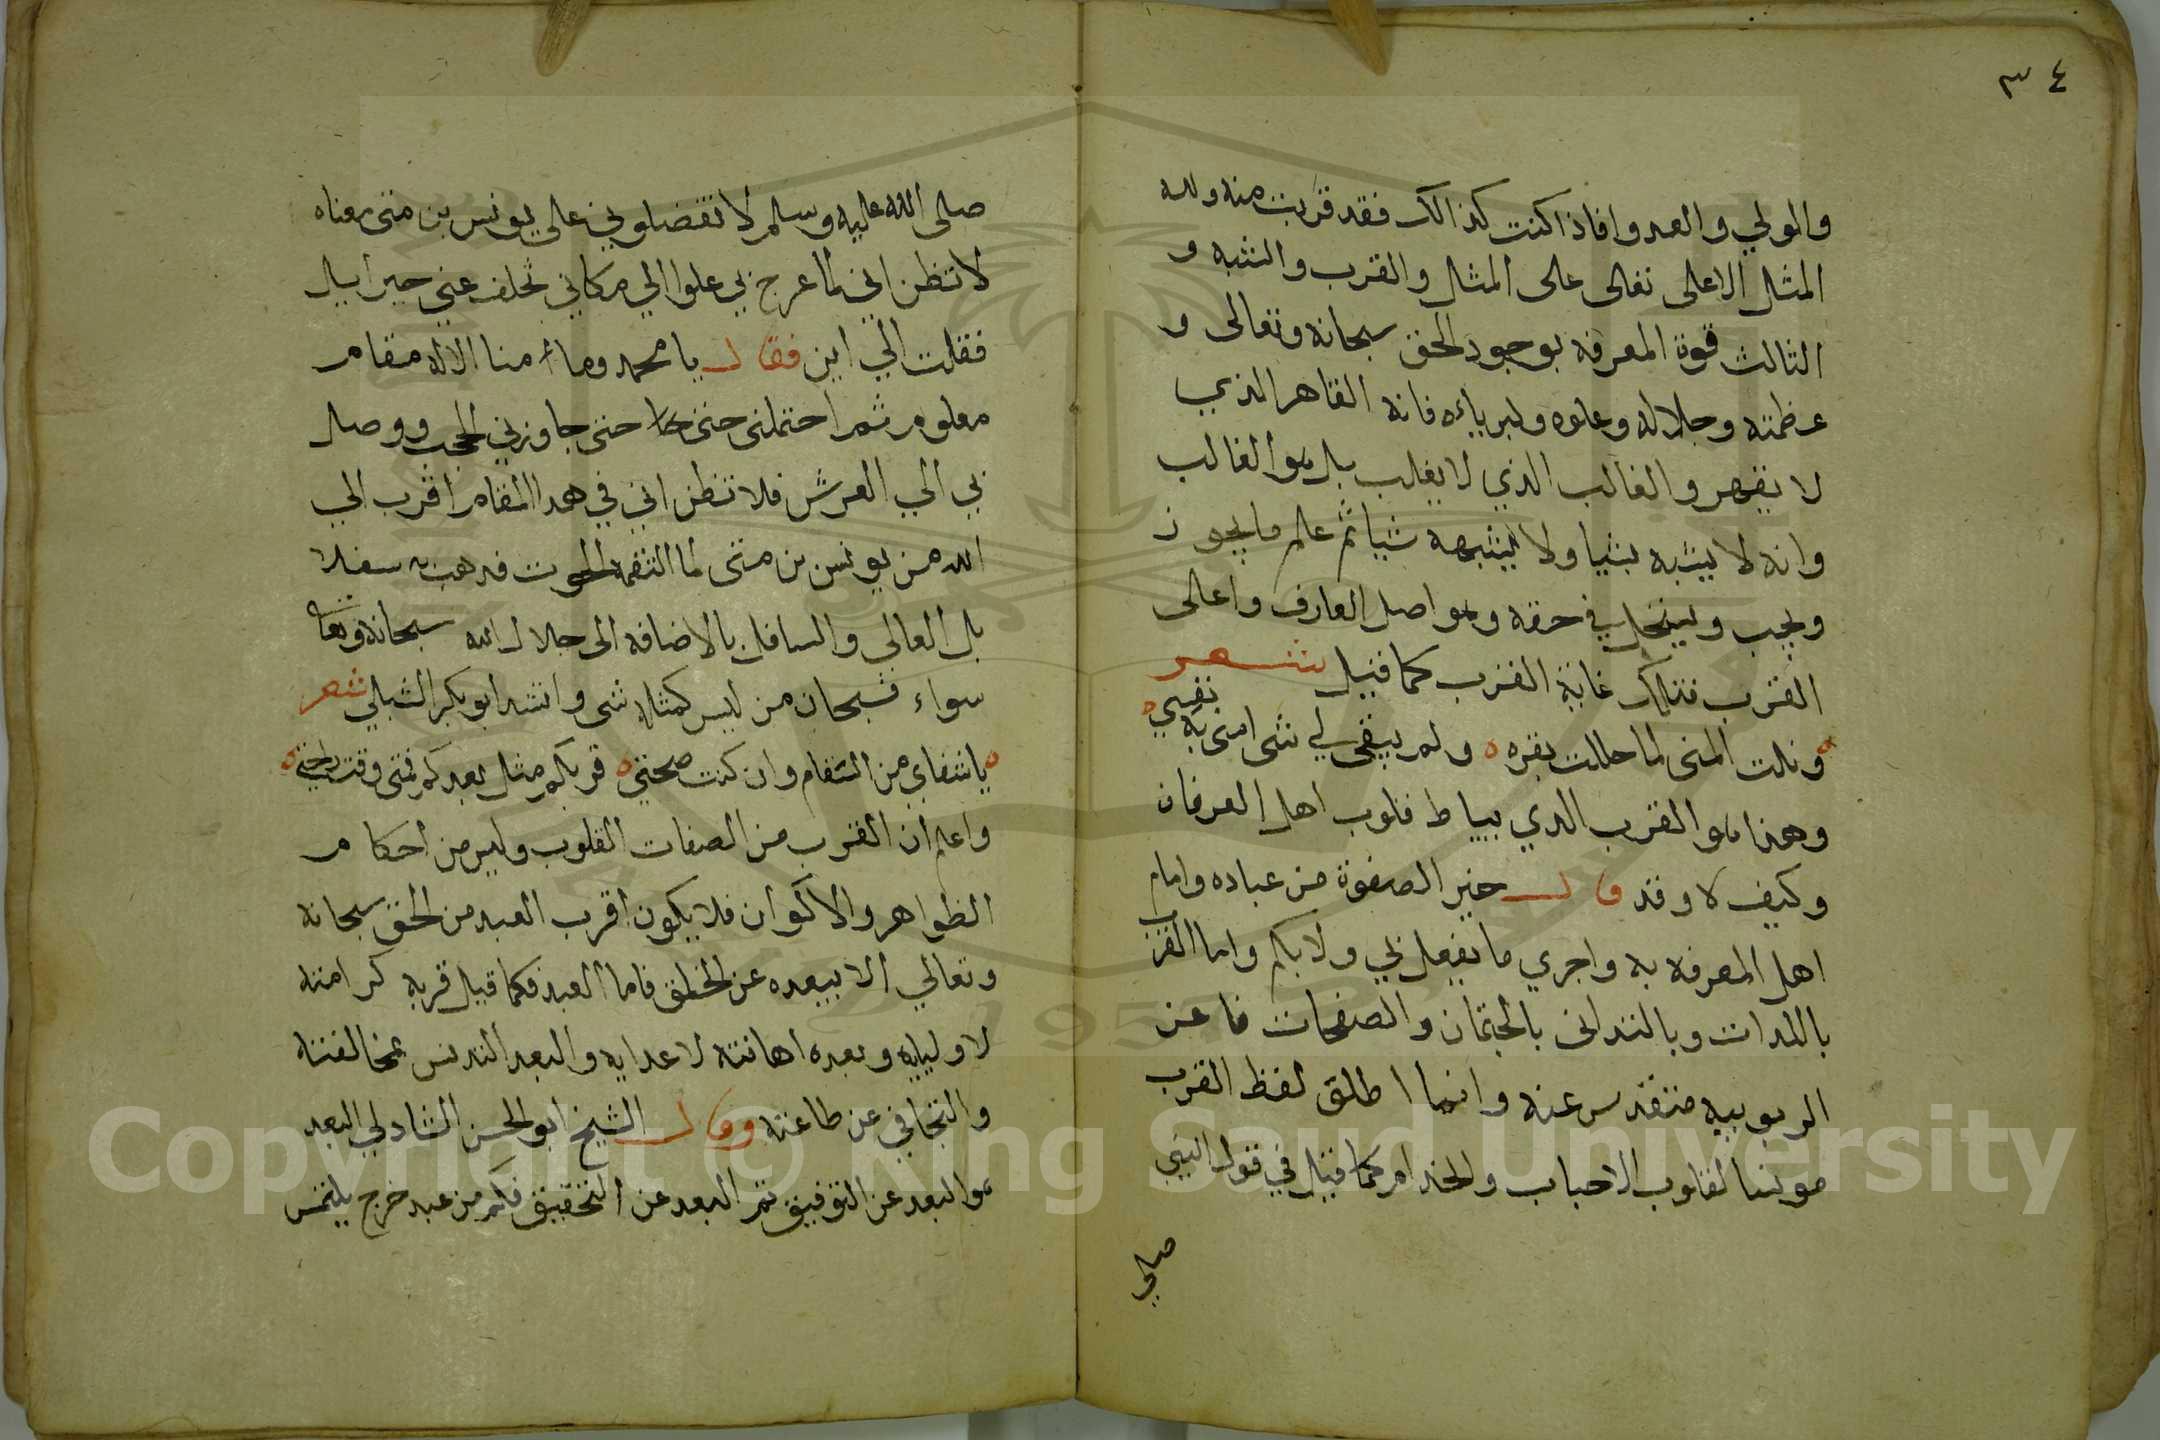 ٣٤
والمولي والعبد وافاذ اكنت كذالك فقد قربت منه ولله
المثل الاعلى تعالى على المثل والقرب والشبه و
الثالث قوة المعرفه بوجود الحق سبحانه وتعالى و
عظمته وجلاله وعلوه وكبرياءه فانه القاهر الذي
لا يقهر والغالب الذي لا يغلب بل هو الغالب
وانه لا يشبه شيا ولا يشبهه شيا ثم علم ما يجوز
ويجب ويستحيل في حقه وهو اصل العارف واعالى
القرب فتلك غاية القرب كما قيل شعر
ونلت المنى لما حللت بقربه ولم يبقى لي شى امنى به نفسي
وهذا هو القرب الذي بساط قلوب اهل العرفان
وكيف لا وقد قال خير الصفوة من عباده وامام
اهل المعرفه به واجري ما يفعل بي ولا بكم واما القرب
بالذات وبالتدانى بالجثمان والصفحات فا عن
الربوبيه متقدس عنه وانما اطلق لفظ القرب
مونسا لقلوب الاحباب والخدام كما قيل في قول النبي
صلي
صلى الله عليه وسلم لا تفضلوني على يونس بن متى معناه
لا تظن اني لما عرج بي علوا الي مكاني تخلف عني جبراييل
فقلت الي اين فقال يا محمد وما منا الا له مقام
معلوم ثم احتملنى حتى حتى جاوزني الحجب ووصل
بي الي العرش فلا تظن اني في هدا المقام اقرب الي
الله من يونس بن متى لما التقمه الحوت فدهب به سفلا
بل العالي والسافل بالاضافه الى جلال الله سبحانه وتعا
سواء فسبحان من ليس كمثله شى وانشد ابو بكر الشبلي شعر
يا شفاي من السقام وان كنت صحتي قربكم مثل بعدكم فمتى وقت راحتي
واعلم ان القرب من الصفات القلوب وليس من احكام
الظواهر والاكوان فلا يكون اقرب العبد من الحق سبحانه
وتعالي الا ببعده عن الخلق فاما العبد فكما قيل قربه كرامته
لاولياىه وبعده اهانته لاعدايه والبعد التدنس بمخالفته
والتجافي عن طاعته وقال الشيخ ابو الحسن الشادلي البعد
هو البعد عن التوفيق ثم البعد عن التحقيق فكم من عبد خرج يلتمس
Copyright © King Saud University